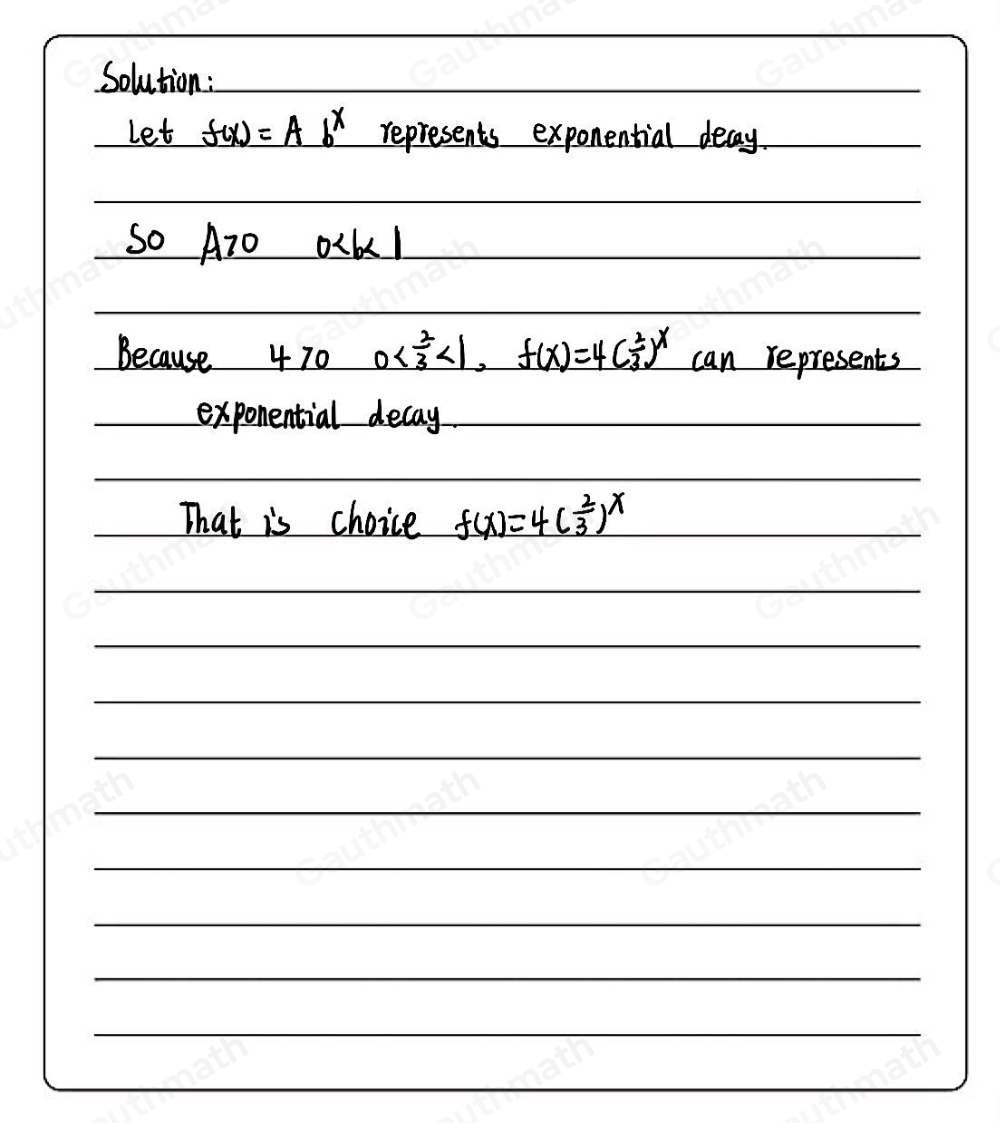 Solution:
Let f(x) = A b^x represents exponential decay.
So A>0 0<b<1
Because 4>0 0<2/3<1, f(x)=4(2/3)^x can represents
exponential decay.
That is choice f(x)=4(2/3)^x